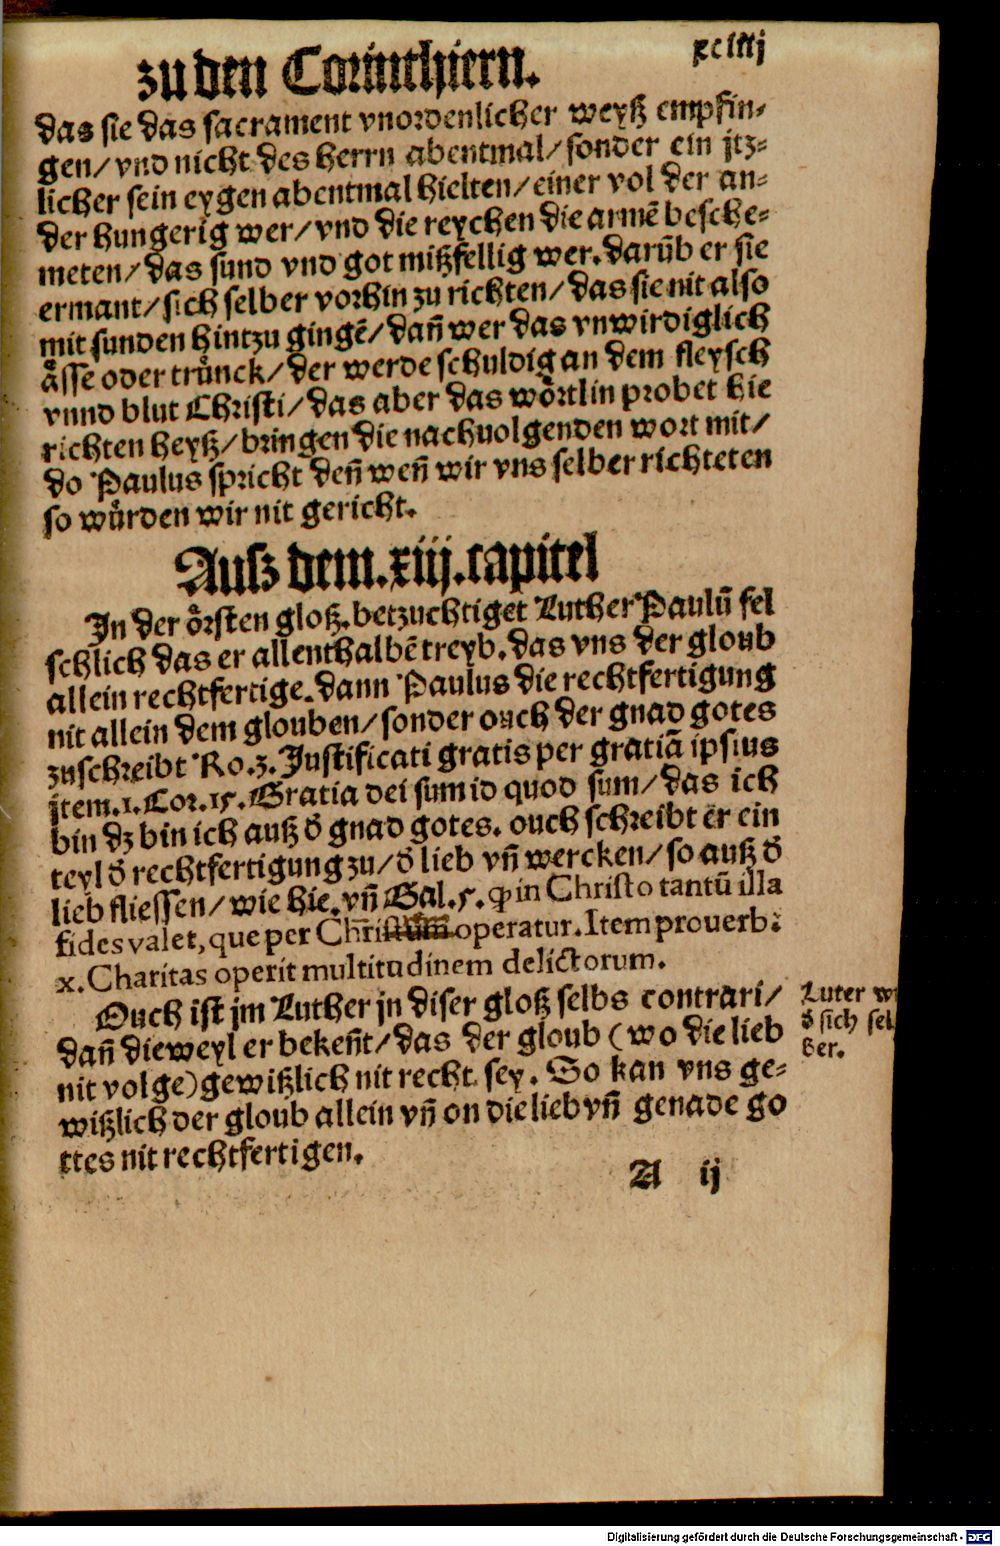 zu den Corinthiern.
xciiij
das sie das sacrament vnordenlicher weyß empfin⸗
gen/ vnd nicht des herrn abentmal/ sonder ein jtz⸗
licher sein eygen abentmal hielten/ einer vol der an⸗
der hungerig wer/ vnd die reychen die armē besche⸗
meten/ das sund vnd got mißfellig wer. darūb er sie
ermant/ sich selber vorhin zu richten/ das sie nit also
mit sunden hintzu gingē/ dañ wer das vnwirdiglich
aͤsse oder truͤnck/ der werde schuldig an dem fleysch
vnnd blut Christi/ das aber das woͤrtlin probet hie
richten heyß/ bringen die nachuolgenden wort mit/
do Paulus spricht deñ weñ wir vns selber richteten
so wuͤrden wir nit gericht.
Auß dem .xiij. capitel
In der oͤrsten gloß. betzuchtiget Luther Paulū fel
schlich das er allenthalbē treyb. das vns der gloub
allein rechtfertige. dann Paulus die rechtfertigung
nit allein dem glouben/ sonder ouch der gnad gotes
zuschreibt Ro. 3. Justificati gratis per gratiā ipsius
jtem. 1. Cor. 15. Gratia dei sum id quod sum/ das ich
bin dz bin ich auß d̕ gnad gotes. ouch schreibt er ein
teyl d̕ rechtfertigung zu/ d̕ lieb vñ wercken/ so auß d̕
lieb fliessen/ wie hie. vñ Gal. 5. ꝙ in Christo tantū illa
fides valet, que per operatur. Item prouerb:
x. Charitas operit multitudinem delictorum.
Ouch ist jm Luther jn diser gloß selbs contrari/
dañ dieweyl er bekeñt/ das der gloub (wo die lieb
nit volge) gewißlich nit recht sey. So kan vns ge⸗
wißlich der gloub allein vñ on die lieb vñ genade go
ttes nit rechtfertigen.
Luter wi
d̕ sich sel
ber.
A ij
Digitalisierung gefördert durch die Deutsche Forschungsgemeinschaft - DFG